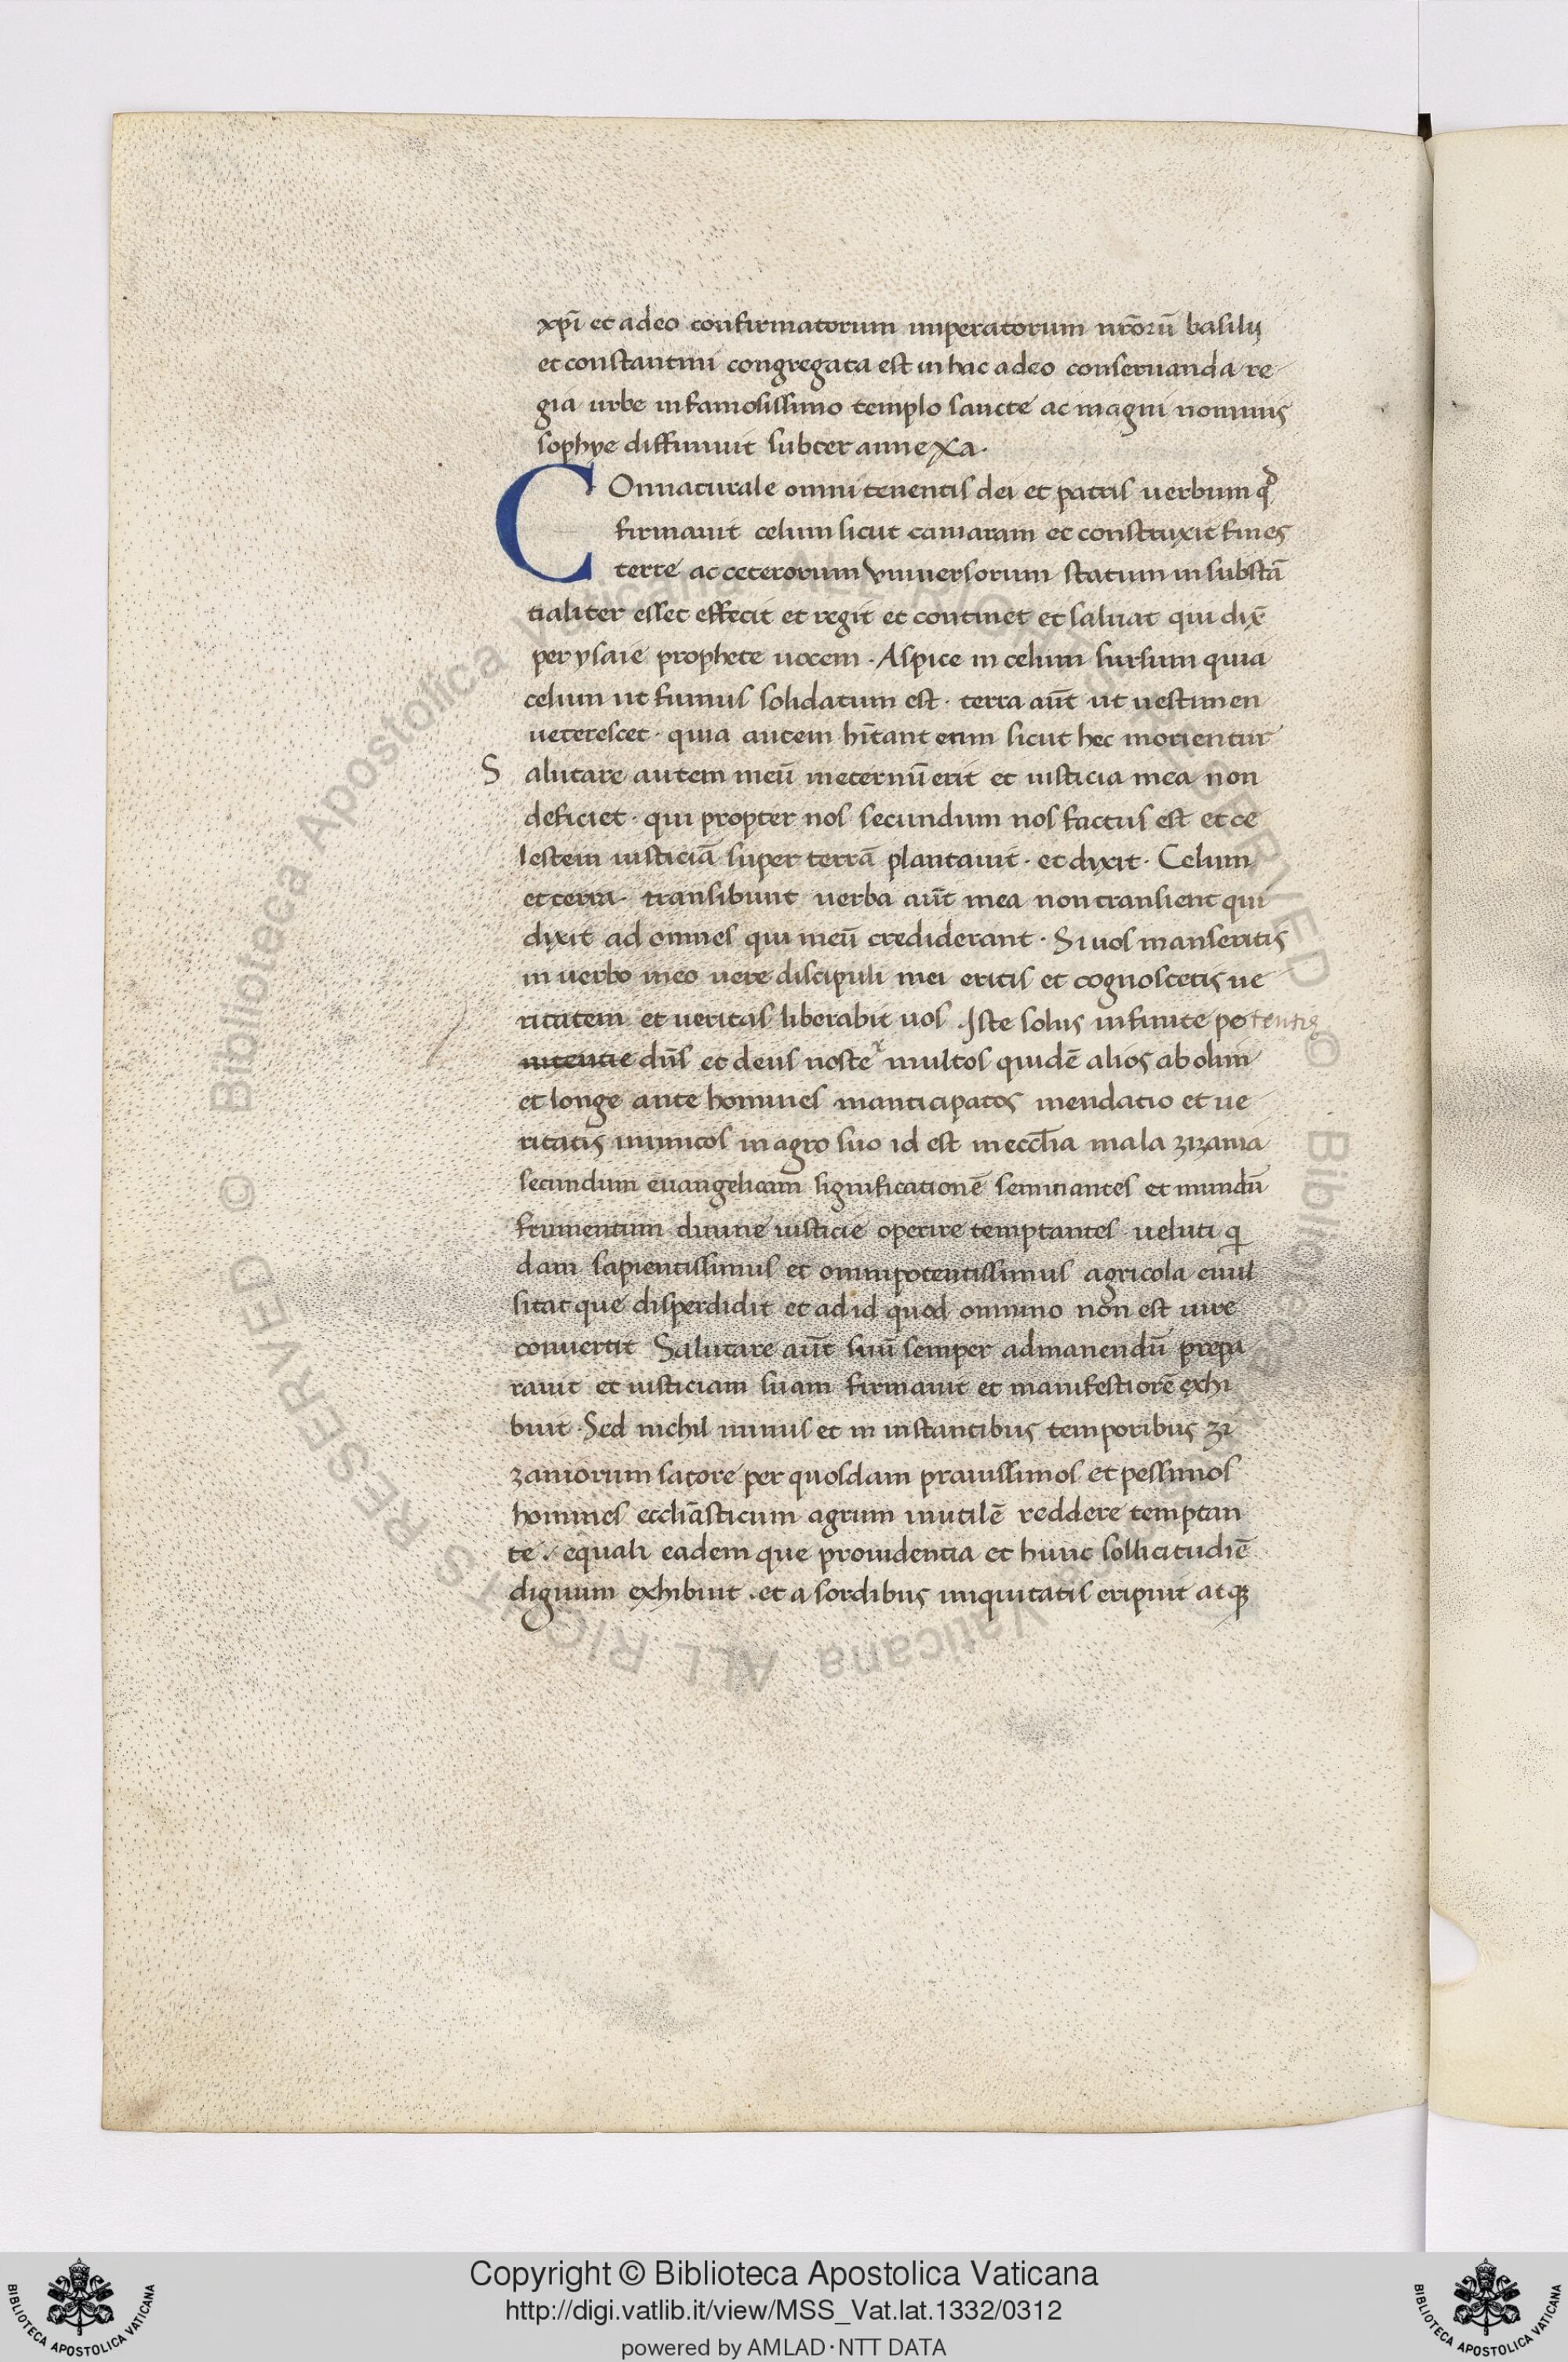 xp̄i et adeo confirmatorum imperatorum nr̄oꝝ basilij
et constantini congregata est in hac adeo conseruanda re
gia urbe in famosissimo templo sancte ac magni nominis
sophye diffiniuit subter annexa.
Connaturale omnitenentis dei et patris uerbum qd
firmauit celum sicut camaram et construxit fines
terre ac ceterorum vniuersorum statum in substā
tialiter esset effecit et regit et continet et saluat qui dix̄
per ysaie prophete uocem. Aspice in celum sursum quia
celum ut fumus solidatum est. terra aūt ut uestimen
ueterescet. quia autem hītant eam sicut hec morientur
Salutare autem meū in eternū erit et iusticia mea non
deficiet. qui propter nos secundum nos factus est et ce
lestem iusticiā super terrā plantauit. et dyxit. Celum
et terra. transibunt uerba aūt mea non transient qui
dixit ad omnes qui in eū crediderant. Si uos manseritis
in uerbo meo uere discipuli mei eritis et cognoscetis ue
ritatem et ueritas liberabit uos. Iste solus infinite potentię
nitentie dn̄s et deus noster multos quidē alios ab olim
et longe ante homines manticipatos mendatio et ue
ritatis inimicos in agro suo id est in eccl̄ia mala zizania
secundum euangelicam significationē seminantes et mundū
frumentum diuine iusticie operire temptantes ueluti qi
dam sapientissimus et omnipotentissimus agricola euul
sit atque disperdidit et ad id quod omnino non est iure
conuertit Salutare aūt suū semper admanendū prepa
rauit et iusticiam suam firmauit et manifestiorē exhi
buit. Sed nichil minus et in instantibus temporibus zi
zaniorum satore per quosdam prauissimos et pessimos
homines eccl̄iasticum agrum inutilē reddere temptan
te. equali eadem que prouidentia et hunc sollicitudīe
dignum exhibuit. et a sordibus iniquitatis eripuit atqꝫ
© Biblioteca Apostolica Vaticana ALL RIGHTS RESERVED © Biblioteca Apostolica Vaticana ALL RIGHTS RESERVED
BIBLIOTECA APOSTOLICA VATICANA
Copyright © Biblioteca Apostolica Vaticana
http://digi.vatlib.it/view/MSS_Vat.lat.1332/0312
powered by AMLAD·NTT DATA
BIBLIOTECA APOSTOLICA VATICANA